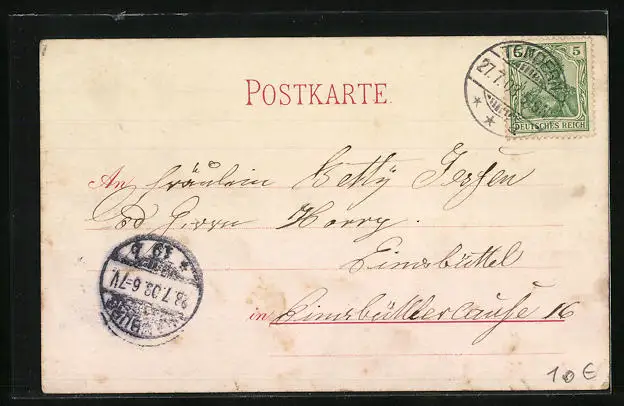 POSTKARTE
5 5
DEUTSCHES REICH
TONDERN
27.7.02
An Fräulein Betty Jessen
Herrn Horry.
Eimsbüttel
in Eimsbüttlercause 16
19 b
28.7.02.6-7V.
10 €